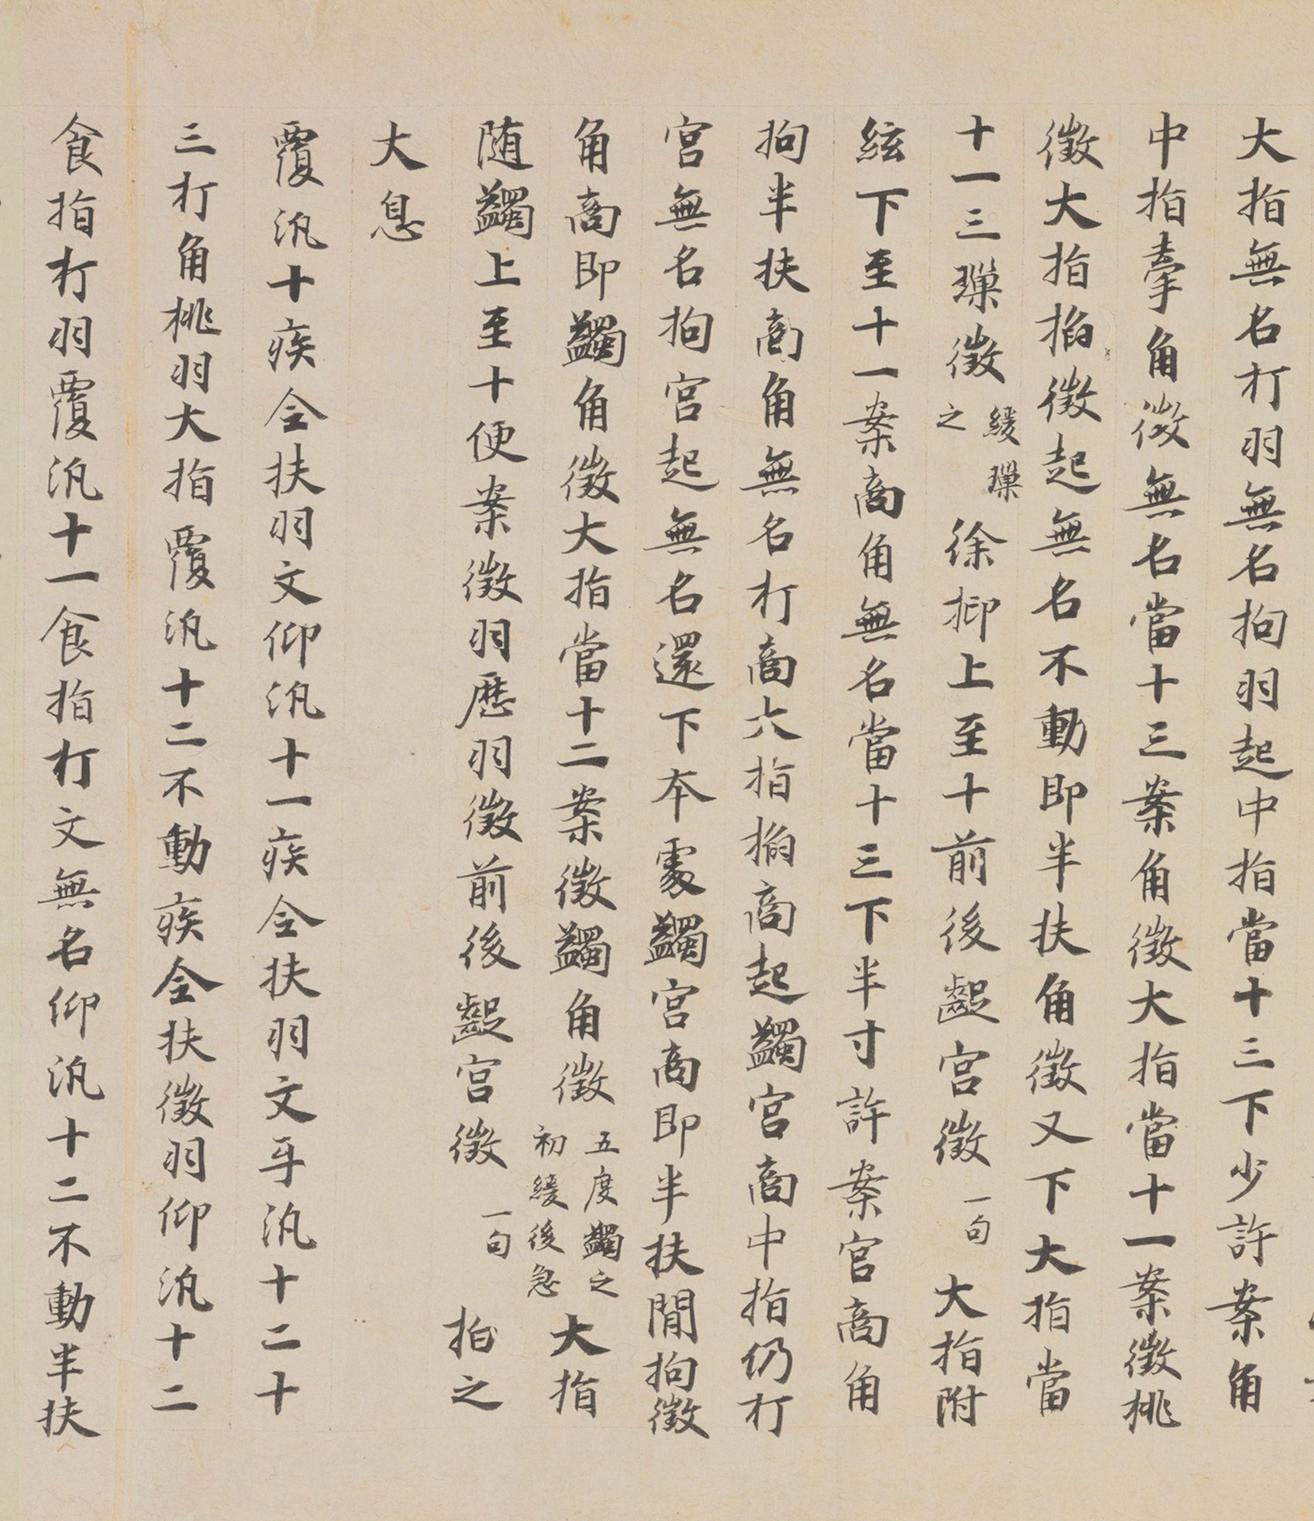 大指無名打羽無名拘羽起中指當十三下少許案角
中指牽角徵無名當十三案角徵大指當十一案徵桃
徵大指掐徵起無名不動即半扶角徵又下大指當
十一三㻫徵緩㻫之徐抑上至十前後齪宮徵一句大指附
絃下至十一案商角無名當十三下半寸許案宮商角
拘半扶商角無名打商大指搊商起蠲宮商中指仍打
宮無名拘宮起無名還下本處蠲宮商即半扶閒拘徵
角商即蠲角徵大指當十二案徵蠲角徵五度蠲之初緩後急大指
随蠲上至十便案徵羽歷羽徵前後齪宮徵一句拍之
大息
覆汎十疾全扶羽文仰汎十一疾全扶羽文牙汎十二十
三打角桃羽大指覆汎十二不動疾全扶徵羽仰汎十二
食指打羽覆汎十一食指打文無名仰汎十二不動半扶